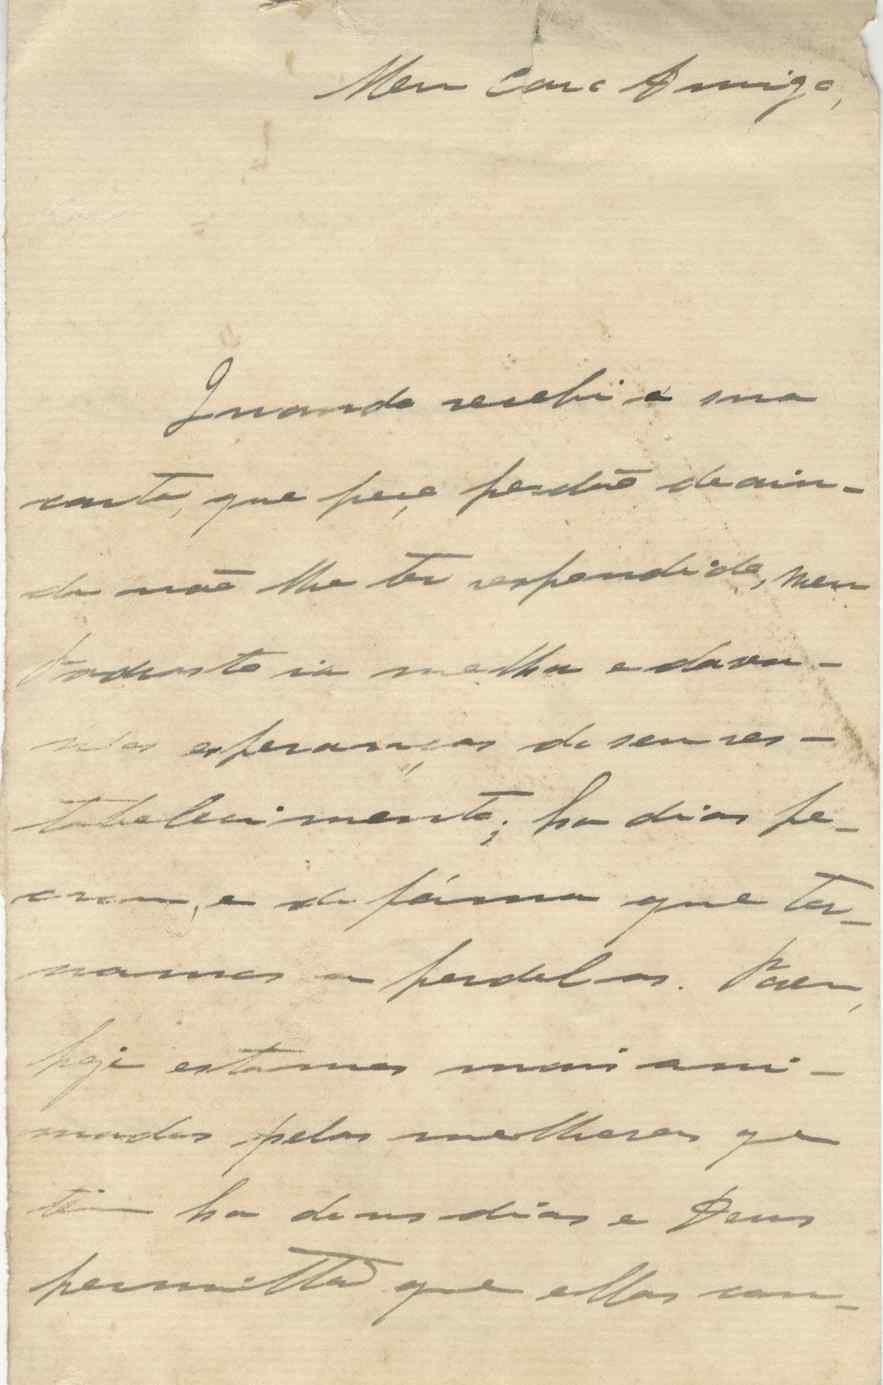 Meu Caro Amigo,
Quando recebi a sua
carta, que peço perdão de ain-
da não lhe ter respondido, meu
Padrasto ia melhor e dava-
nos esperanças do seu res-
tabelecimento; ha dias pe-
orou, e de fórma que tor-
namos a perdel as. Porem,
hoje estamos mais ani-
mados pelas melhoras que
tem ha dous dias e Deus
permitta que ellas con-